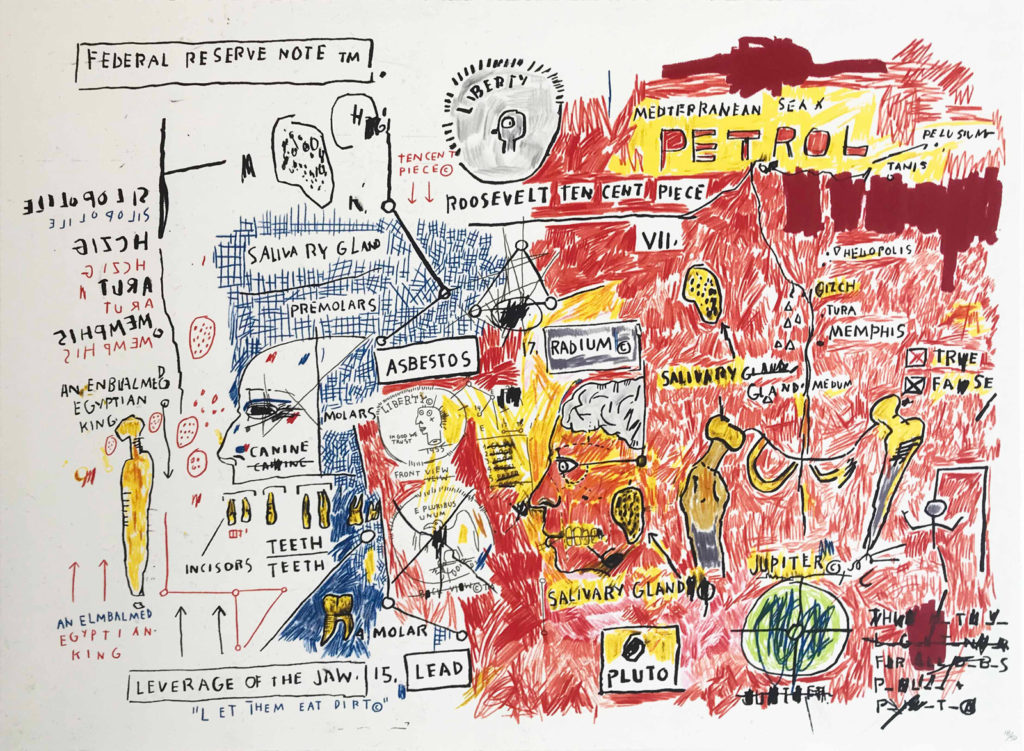 FEDERAL RESERVE NOTE TM
LIBERTY
MEDITERRANEAN SEA X
PETROL
PELUSIUM
TANIS
TEN CENT
PIECE©
ROOSEVELT TEN CENT PIECE
VII.
SILOPOLILE
SILOPOLILE
HCZIG
HCZIG
ARUT
ARUT
MEMPHIS
MEMPHIS
SALIVARY GLAND
PREMOLARS
HELIOPOLIS
GIZCH
TURA
MEMPHIS
MEDUM
ASBESTOS
17.
RADIUM ©
SALIVARY GLAND
GLAND.
TRUE
FALSE
AN ENBALMED
EGYPTIAN
KING
MOLARS
LIBERTY©
IN GOD WE
TRUST
1955
FRONT VIEW
VIEW
E PLURIBUS
UNUM
CANINE
CANINE
TEETH
TEETH
INCISORS
AN ELMBALMED
EGYPTIAN.
KING
MOLAR
LEVERAGE OF THE JAW. 15.
LEAD
"LET THEM EAT DIRT©"
SALIVARY GLAND
JUPITER
PLUTO